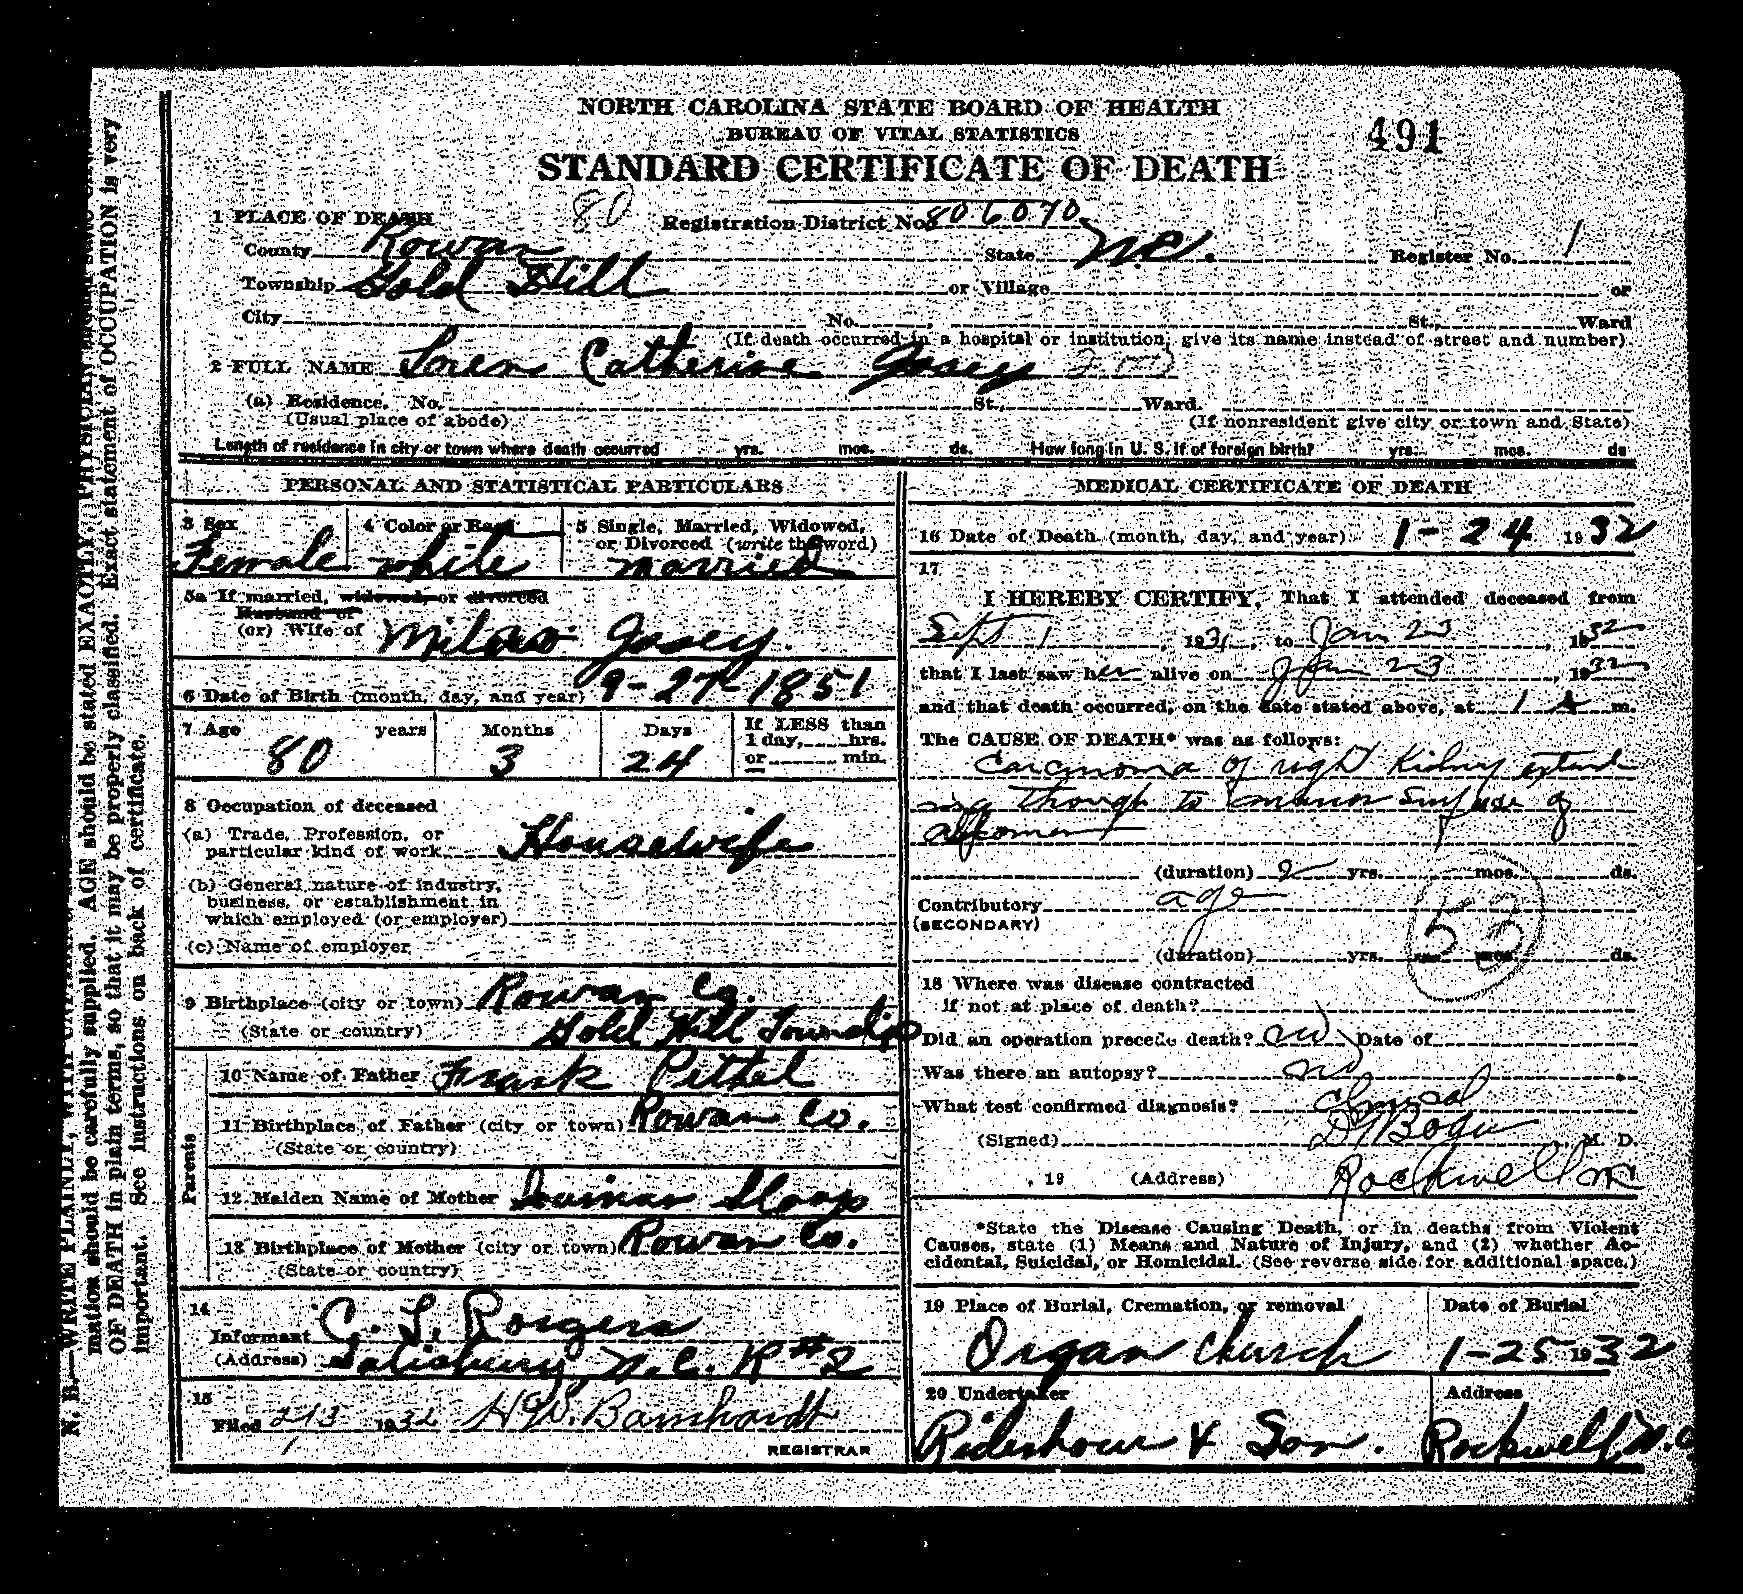 NORTH CAROLINA STATE BOARD OF HEALTH
BUREAU OF VITAL STATISTICS
491
STANDARD CERTIFICATE OF DEATH
1 PLACE OF DEATH 80 Registration District No. 806070
County Rowan State N.C. Register No. 1
Township Gold Hill or Village or
City No. , St., Ward
(If death occurred in a hospital or institution, give its name instead of street and number)
2 FULL NAME Loren Catherine Josey
(a) Residence. No. St., Ward.
(Usual place of abode) (If nonresident give city or town and State)
Length of residence in city or town where death occurred yrs. mos. ds. How long in U. S. if of foreign birth? yrs. mos. ds
PERSONAL AND STATISTICAL PARTICULARS
3 Sex 4 Color or Race 5 Single, Married, Widowed,
or Divorced (write the word)
Female white married
5a If married, widowed, or divorced
Husband of
(or) Wife of Milas Josey.
6 Date of Birth (month, day, and year) 9-27-1851
7 Age years Months Days If LESS than
1 day, hrs.
80 3 24 or min.
8 Occupation of deceased
(a) Trade, Profession, or
particular kind of work Housewife
(b) General nature of industry,
business, or establishment in
which employed (or employer)
(c) Name of employer
9 Birthplace (city or town) Rowan Co.
(State or country) Gold Hill Township
Parents
10 Name of Father Frank Pethel
11 Birthplace of Father (city or town) Rowan Co.
(State or country)
12 Maiden Name of Mother Sloop
13 Birthplace of Mother (city or town) Rowan Co.
(State or country)
14
Informant C. L. Rodgers
(Address) Salisbury, N.C. R#2
15
Filed 2/3 1932 H.W. Barnhardt
REGISTRAR
MEDICAL CERTIFICATE OF DEATH
16 Date of Death (month, day, and year) 1-24 1932
17
I HEREBY CERTIFY, That I attended deceased from
Sept 1, 1931, to Jan 23, 1932
that I last saw her alive on Jan 23, 1932
and that death occurred, on the date stated above, at 1 A m.
The CAUSE OF DEATH* was as follows:
Carcinoma of right Kidney extend
ing though to surface of
abdomen
(duration) 2 yrs. mos. ds.
Contributory age
(SECONDARY)
53
(duration) yrs. mos. ds.
18 Where was disease contracted
if not at place of death?
Did an operation precede death? no Date of
Was there an autopsy? no
What test confirmed diagnosis? clinical
(Signed) M. D.
, 19 (Address) Rockwell NC
*State the Disease Causing Death, or in deaths from Violent
Causes, state (1) Means and Nature of Injury, and (2) whether Ac-
cidental, Suicidal, or Homicidal. (See reverse side for additional space.)
19 Place of Burial, Cremation, or removal Date of Burial
Organ Church 1-25-1932
20 Undertaker Address
Rideshour & Son. Rockwell, N.C
mation should be carefully supplied. AGE should be stated EXACTLY. PHYSICIAN
OF DEATH in plain terms, so that it may be properly classified. Exact statement of OCCUPATION is very
important. See instructions on back of certificate.